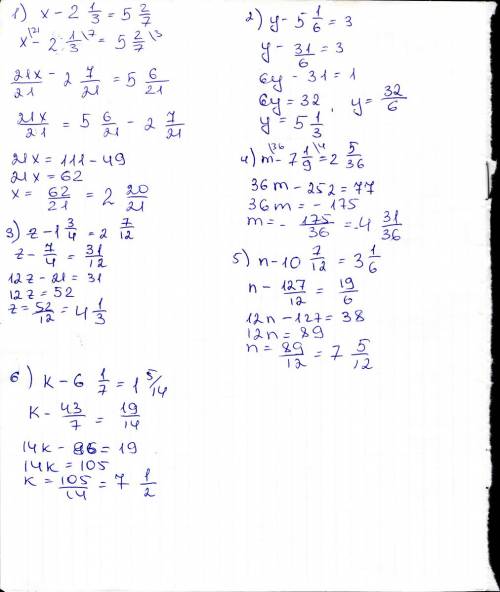 1) x - 2 1/3 = 5 2/7
x\21 - 2 1/3\7 = 5 2/7\3
21x/21 - 2 7/21 = 5 6/21
21x/21 = 5 6/21 - 2 7/21
21x = 111 - 49
21x = 62
x = 62/21 = 2 20/21
2) y - 5 1/6 = 3
y - 31/6 = 3
6y - 31 = 1
6y = 32, y = 32/6
y = 5 1/3
3) z - 1 3/4 = 2 7/12
z - 7/4 = 31/12
12z - 21 = 31
12z = 52
z = 52/12 = 4 1/3
4) m\36 - 7 1/9\4 = 2 5/36
36m - 252 = 77
36m = - 175
m = - 175/36 = -4 31/36
5) n - 10 7/12 = 3 1/6
n - 127/12 = 19/6
12n - 127 = 38
12n = 89
n = 89/12 = 7 5/12
6) k - 6 1/7 = 1 5/14
k - 43/7 = 19/14
14k - 86 = 19
14k = 105
k = 105/14 = 7 1/2